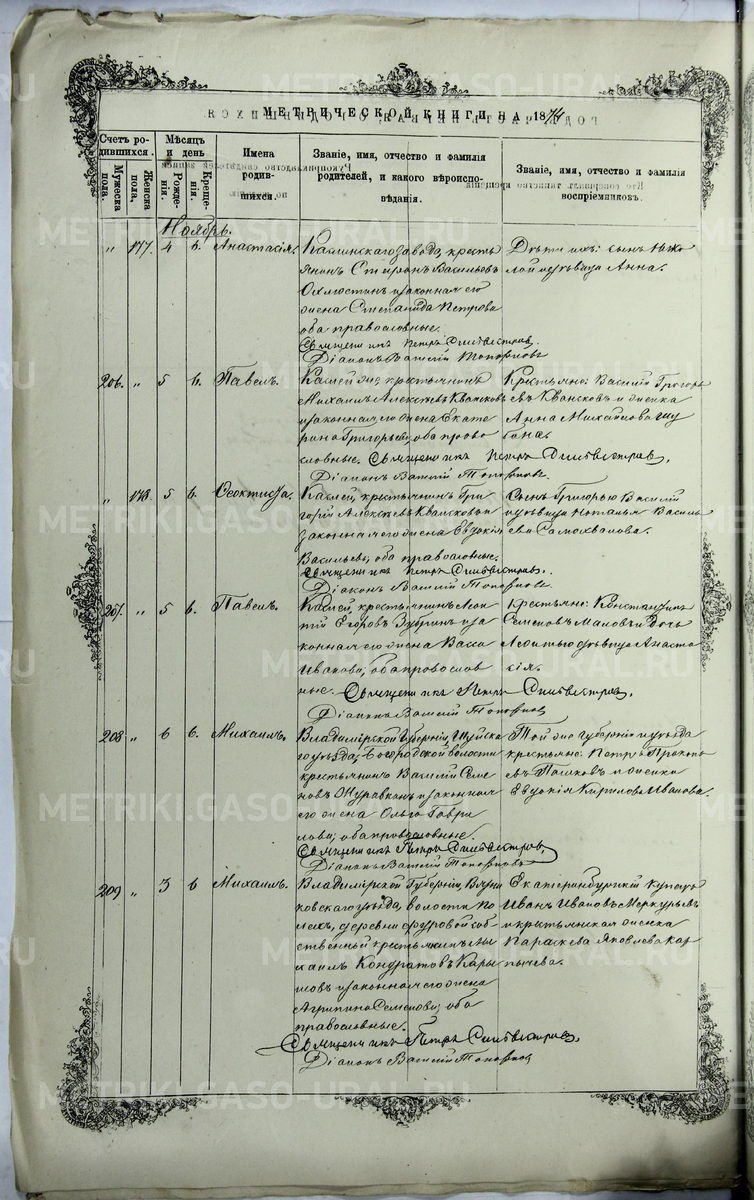 METRIKI.GASO-URAL.RU
МЕТРИЧЕСКОЙ КНИГИ НА 1874
Счетъ родившихся.
Мужеска пола.
Женска пола.
Мѣсяцъ и день
Рожденія.
Крещенія.
Имена родившихся.
Званіе, имя, отчество и фамилія родителей, и какого вѣроисповѣданія.
Званіе, имя, отчество и фамилія воспріемниковъ.
Ноябрь.
" 177. 4 6. Анастасія.
Каслинскаго завода, кресть
янинъ Васильевъ
и законная его
жена Степанида Петрова
оба православные.
Священникъ Петръ Сильвестровъ.
Діаконъ Василій Топорковъ
Дѣти ихъ: сынъ Нико
лай и дѣвица Анна.
206. " 5 6. Павелъ.
крестьянинъ
Михаилъ Алексѣевъ
и законная его жена Екате
рина Григорьева, оба право
славные. Священникъ Петръ Сильвестровъ.
Діаконъ Василій Топорковъ
Крестьяне: Василій Григорь
евъ и женка
Анна Михайлова
" 178. 5 6. Ѳеоктиста.
Каслей, крестьянинъ Гри
горій Алексѣевъ и
законная его жена Евдокія
Васильева, оба православные.
Священникъ Петръ Сильвестровъ.
Діаконъ Василій Топорковъ
Сынъ Григорью Василій
и дѣвица Наталья Василь
ева Самохвалова.
207. " 5 6. Павелъ.
Каслей, крестьянинъ Леон
тій Егоровъ Зубринъ и за
конная его жена Васса
Иванова, оба православ
ные. Священникъ Петръ Сильвестровъ.
Діаконъ Василій Топорковъ
Крестьяне: Константинъ
Семеновъ и дочь
Леонтью дѣвица Анаста
сія.
208 " 6 6. Михаилъ.
Владимірской Губерніи, Шуйска
го уѣзда, Богородской волости
крестьянинъ Василій Семе
новъ Журавкинъ и законная
его жена Ольга Гаври
лова, оба православные.
Священникъ Петръ Сильвестровъ,
Діаконъ Василій Топорковъ
Той же губерніи и уѣзда
крестьяне: Петръ Прокопь
евъ Пашковъ и женка
Евдокія Кирилова Иванова.
209 " 3 6 Михаилъ.
Владимірской Губерніи, Вязни
ковскаго уѣзда, волости
деревни соб
ственный крестьянинъ Ми
хаилъ Кондратовъ Кары
шовъ и законная его жена
Агрипина Семенова, оба
православные.
Священникъ Петръ Сильвестровъ,
Діаконъ Василій Топорковъ
Екатеринбургскій
Иванъ Ивановъ Меркурьевъ
и крестьянская женка
Параскева Яковлева Кар
пычева.